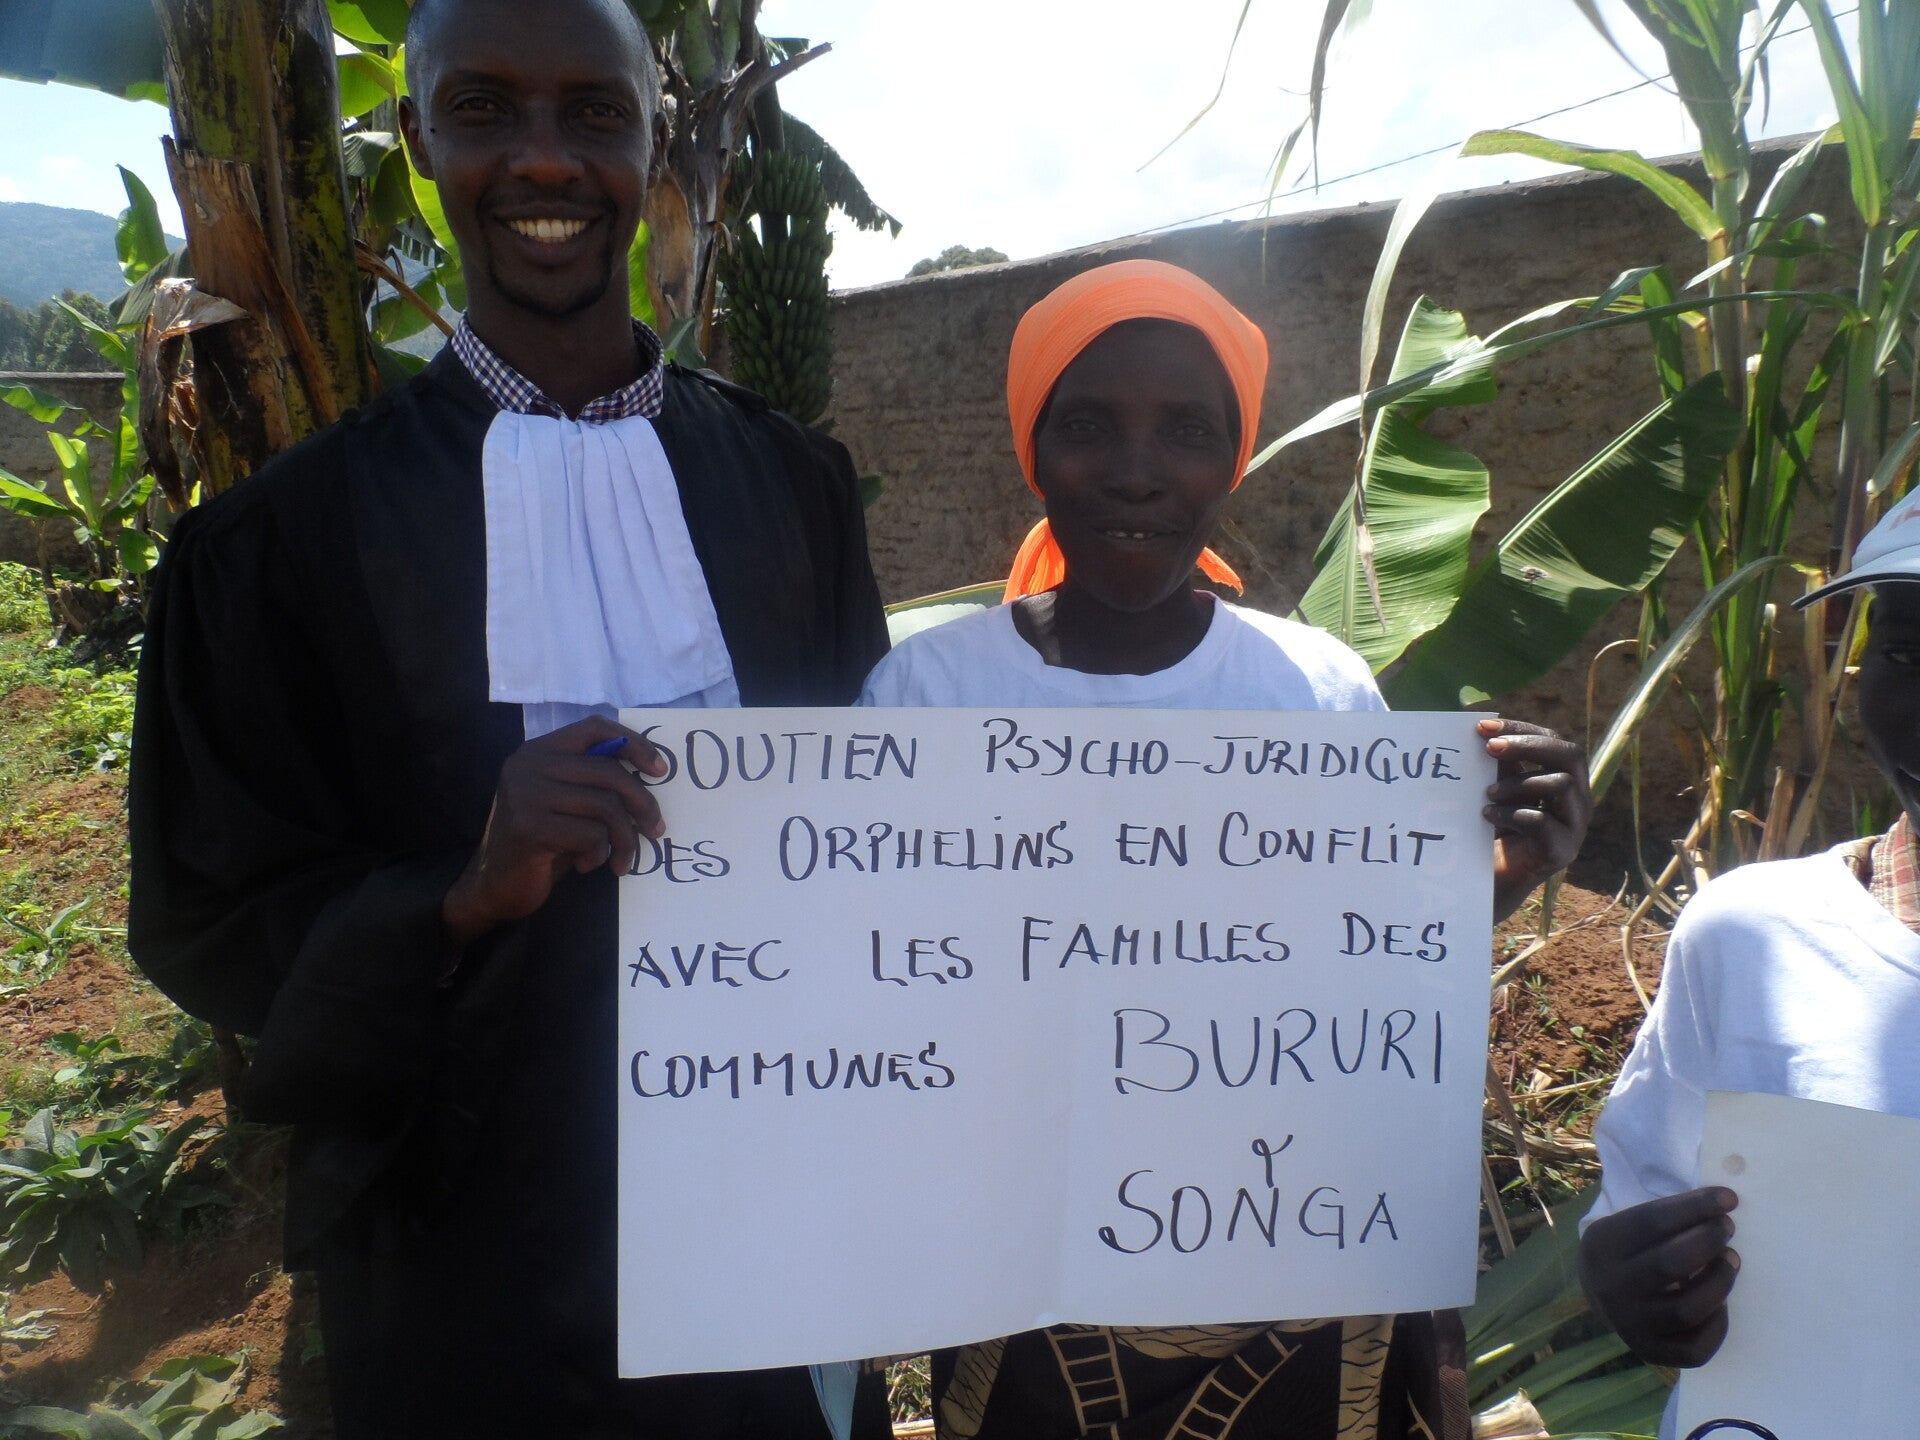 SOUTIEN PSYCHO-JURIDIQUE
DES ORPHELINS EN CONFLIT
AVEC LES FAMILLES DES
COMMUNES BURURI
&
SONGA